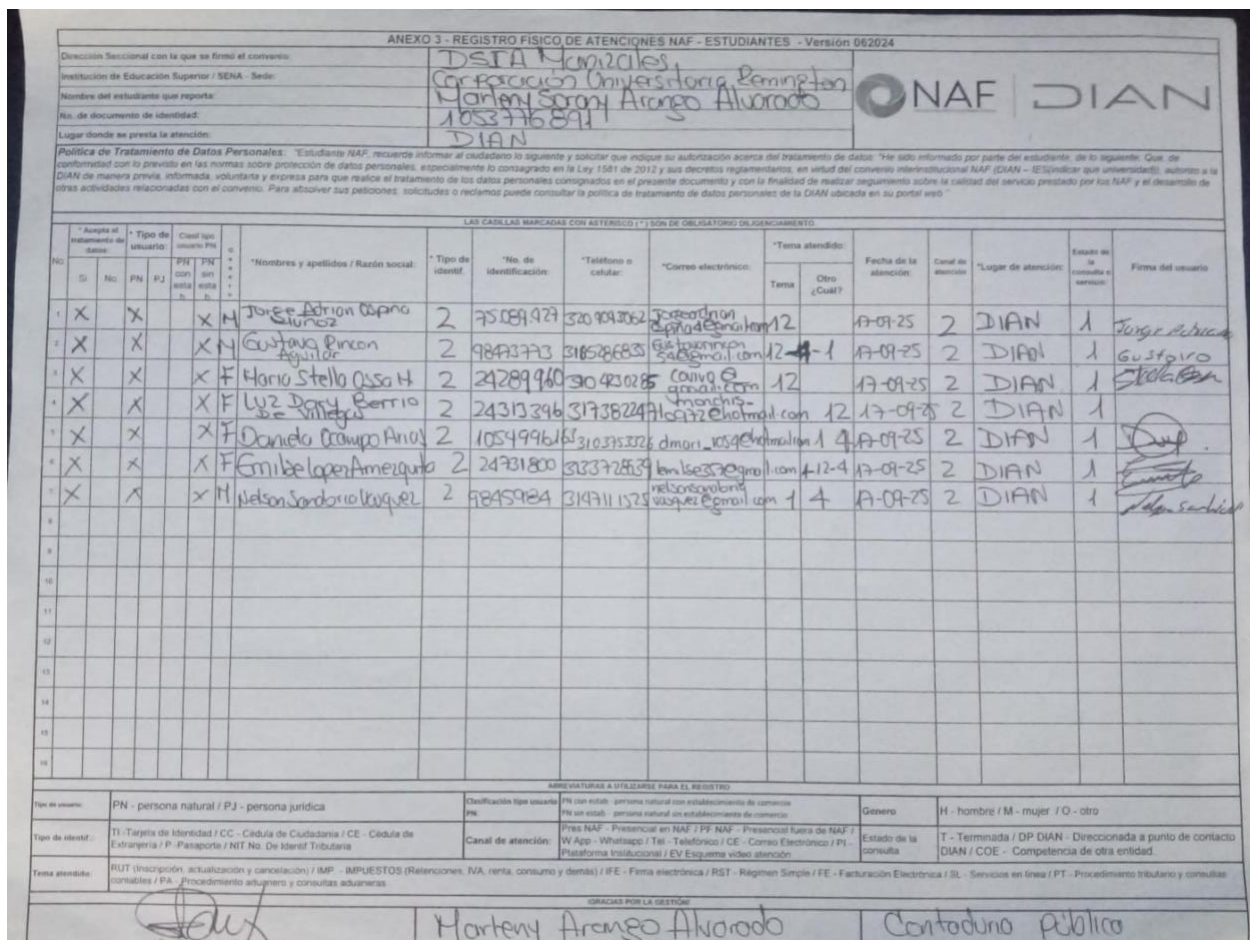 ANEXO 3 - REGISTRO FÍSICO DE ATENCIONES NAF - ESTUDIANTES - Versión 062024
Dirección Seccional con la que se firmó el convenio: DSIA Manizales
Institución de Educación Superior / SENA - Sede: Corporación Universitaria Remington
Nombre del estudiante que reporta: Marleny Sorany Arango Alvarado
No. de documento de identidad: 1053776891
Lugar donde se presta la atención: DIAN
NAF | DIAN
Política de Tratamiento de Datos Personales: "Estudiante NAF, recuerde informar al ciudadano lo siguiente y solicitar que indique su autorización acerca del tratamiento de datos: "He sido informado por parte del estudiante, de lo siguiente: Que, de
conformidad con lo previsto en las normas sobre protección de datos personales, especialmente lo consagrado en la Ley 1581 de 2012 y sus decretos reglamentarios, en virtud del convenio interinstitucional NAF (DIAN – IES(indicar que universidad)), autorizo a la
DIAN de manera previa, informada, voluntaria y expresa para que realice el tratamiento de los datos personales consignados en el presente documento y con la finalidad de realizar seguimiento sobre la calidad del servicio prestado por los NAF y el desarrollo de
otras actividades relacionadas con el convenio. Para absolver sus peticiones, solicitudes o reclamos puede consultar la política de tratamiento de datos personales de la DIAN ubicada en su portal web."
LAS CASILLAS MARCADAS CON ASTERISCO (*) SON DE OBLIGATORIO DILIGENCIAMIENTO
No. * Acepta el tratamiento de datos: * Tipo de usuario: Clasif tipo usuario PN *Nombres y apellidos / Razón social: * Tipo de identif. *No. de identificación: *Teléfono o celular: *Correo electrónico: *Tema atendido: Fecha de la atención: Canal de atención *Lugar de atención: Estado de la consulta o servicio: Firma del usuario
Si No PN PJ PN con estab. PN sin estab. Tema Otro ¿Cuál?
1 X X X M Jorge Adrian Ospina Muñoz 2 75.089.927 3209093062 12 17-09-25 2 DIAN 1
2 X X X M Gustavo Rincon Aguilar 2 98473773 3185286835 12 -1 17-09-25 2 DIAN 1 Gustavo
3 X X X F Maria Stella Ossa H 2 24289960 310 4230285 12 17-09-25 2 DIAN 1
4 X X X F Luz Dary Berrio De Villegas 2 24313396 12 17-09-25 2 DIAN 1
5 X X X F Daniela Ocampo Arias 2 3103753326 1 4 17-09-25 2 DIAN 1
6 X X X F Emibe Lopez Amezquita 2 24731800 4-12-4 17-09-25 2 DIAN 1
7 X X X M Nelson Sanabria Vasquez 2 9845984 3147111525 nelsonsanabria vasquez@gmail.com 1 4 17-09-25 2 DIAN 1
8
9
10
11
12
13
14
15
16
ABREVIATURAS A UTILIZARSE PARA EL REGISTRO
Tipo de usuario: PN - persona natural / PJ - persona jurídica
Clasificación tipo usuario PN: PN con estab - persona natural con establecimiento de comercio
PN sin estab - persona natural sin establecimiento de comercio
Genero H - hombre / M - mujer / O - otro
Tipo de identif.: TI -Tarjeta de Identidad / CC - Cédula de Ciudadanía / CE - Cédula de
Extranjería / P -Pasaporte / NIT No. De Identif Tributaria
Canal de atención: Pres NAF - Presencial en NAF / PF NAF - Presencial fuera de NAF /
W App - Whatsapp / Tel - Telefónico / CE - Correo Electrónico / PI -
Plataforma Institucional / EV Esquema video atención
Estado de la consulta T - Terminada / DP DIAN - Direccionada a punto de contacto
DIAN / COE - Competencia de otra entidad.
Tema atendido: RUT (Inscripción, actualización y cancelación) / IMP - IMPUESTOS (Retenciones, IVA, renta, consumo y demás) / IFE - Firma electrónica / RST - Régimen Simple / FE - Facturación Electrónica / SL - Servicios en línea / PT - Procedimiento tributario y consultas
contables / PA - Procedimiento aduanero y consultas aduaneras
¡GRACIAS POR LA GESTIÓN!
Marleny Arango Alvarado Contaduria Pública